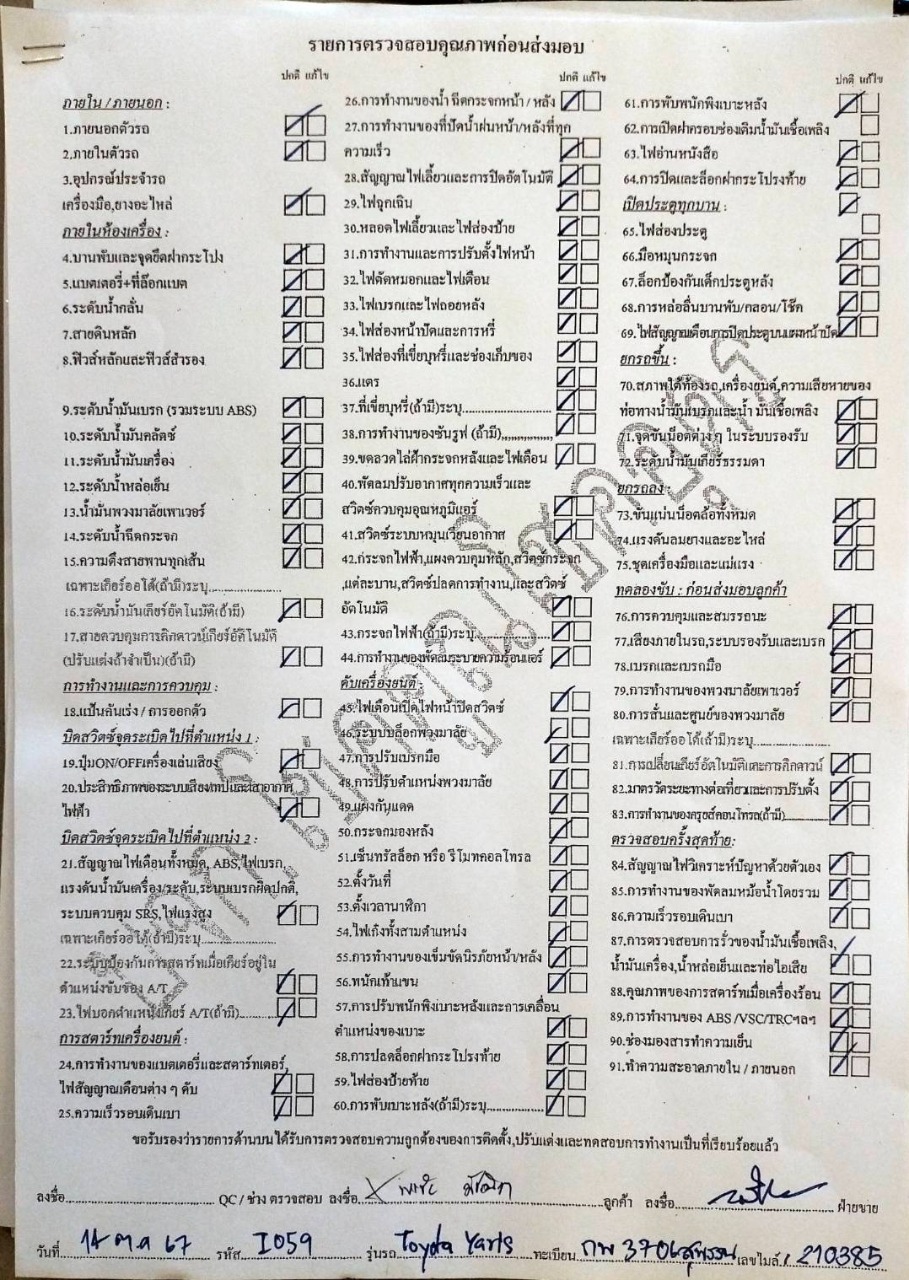 รายการตรวจสอบคุณภาพก่อนส่งมอบ
ปกติ แก้ไข
ภายใน / ภายนอก :
1.ภายนอกตัวรถ
2.ภายในตัวรถ
3.อุปกรณ์ประจำรถ
เครื่องมือ,ยางอะไหล่
ภายในห้องเครื่อง :
4.บานพับและจุดยึดฝากระโปง
5.แบตเตอรี่+ที่ล๊อกแบต
6.ระดับน้ำกลั่น
7.สายดินหลัก
8.ฟิวส์หลักและฟิวส์สำรอง
9.ระดับน้ำมันเบรก (รวมระบบ ABS)
10.ระดับน้ำมันคลัตช์
11.ระดับน้ำมันเครื่อง
12.ระดับน้ำหล่อเย็น
13.น้ำมันพวงมาลัยเพาเวอร์
14.ระดับน้ำฉีดกระจก
15.ความตึงสายพานทุกเส้น
เฉพาะเกียร์ออโต้(ถ้ามี)ระบุ....................
16.ระดับน้ำมันเกียร์อัตโนมัติ(ถ้ามี)
17.สายควบคุมการคิกดาวน์เกียร์อัติโนมัติ
(ปรับแต่งถ้าจำเป็น)(ถ้ามี)
การทำงานและการควบคุม :
18.แป้นคันเร่ง / การออกตัว
บิดสวิตซ์จุดระเบิดไปที่ตำแหน่ง 1 :
19.ปุ่มON/OFFเครื่องเล่นเสียง
20.ประสิทธิภาพของระบบเสียงเทปและเสาอากาศ
ไฟฟ้า
บิดสวิตซ์จุดระเบิดไปที่ตำแหน่ง 2 :
21.สัญญาณไฟเตือนทั้งหมด, ABS,ไฟเบรก,
แรงดันน้ำมันเครื่อง/ระดับ,ระบบเบรกผิดปกติ,
ระบบควบคุม SRS,ไฟแรงสูง
เฉพาะเกียร์ออโต้(ถ้ามี)ระบุ....................
22.ระบบป้องกันการสตาร์ทเมื่อเกียร์อยู่ใน
ตำแหน่งขับของ A/T
23.ไฟบอกตำแหน่งเกียร์ A/T(ถ้ามี)..........
การสตาร์ทเครื่องยนต์ :
24.การทำงานของแบตเตอรี่และสตาร์ทเตอร์,
ไฟสัญญาณเตือนต่าง ๆ ดับ
25.ความเร็วรอบเดินเบา
ปกติ แก้ไข
26.การทำงานของน้ำ ฉีดกระจกหน้า / หลัง
27.การทำงานของที่ปัดน้ำฝนหน้า/หลังที่ทุก
ความเร็ว
28.สัญญาณไฟเลี้ยวและการปิดอัตโนมัติ
29.ไฟฉุกเฉิน
30.หลอดไฟเลี้ยวและไฟส่องป้าย
31.การทำงานและการปรับตั้งไฟหน้า
32.ไฟตัดหมอกและไฟเตือน
33.ไฟเบรกและไฟถอยหลัง
34.ไฟส่องหน้าปัดและการหรี่
35.ไฟส่องที่เขี่ยบุหรี่และช่องเก็บของ
36.แตร
37.ที่เขี่ยบุหรี่(ถ้ามี)ระบุ....................
38.การทำงานของซันรูฟ (ถ้ามี),,,,,,,,,,,,,,,
39.ขดลวดไล่ฝ้ากระจกหลังและไฟเตือน
40.พัดลมปรับอากาศทุกความเร็วและ
สวิตซ์ควบคุมอุณหภูมิแอร์
41.สวิตซ์ระบบหมุนเวียนอากาศ
42.กระจกไฟฟ้า,แผงควบคุมหลัก,สวิตซ์กระจก
,แต่ละบาน,สวิตซ์ปลดการทำงาน,และสวิตซ์
อัตโนมัติ
43.กระจกไฟฟ้า(ถ้ามี)ระบุ....................
44.การทำงานของพัดลมระบายความร้อนแอร์
ดับเครื่องยนต์ :
45.ไฟเตือนเปิดไฟหน้าปิดสวิตซ์
46.ระบบบล็อกพวงมาลัย
47.การปรับเบรกมือ
48.การปรับตำแหน่งพวงมาลัย
49.แผงกันแดด
50.กระจกมองหลัง
51.เซ็นทรัลล็อก หรือ รีโมทคอลโทรล
52.ตั้งวันที่
53.ตั้งเวลานาฬิกา
54.ไฟเก๋งทั้งสามตำแหน่ง
55.การทำงานของเข็มขัดนิรภัยหน้า/หลัง
56.พนักเท้าแขน
57.การปรับพนักพิงเบาะหลังและการเคลื่อน
ตำแหน่งของเบาะ
58.การปลดล็อกฝากระโปรงท้าย
59.ไฟส่องป้ายท้าย
60.การพับเบาะหลัง(ถ้ามี)ระบุ....................
ปกติ แก้ไข
61.การพับพนักพิงเบาะหลัง
62.การเปิดฝาครอบช่องเติมน้ำมันเชื้อเพลิง
63.ไฟอ่านหนังสือ
64.การปิดและล็อกฝากระโปรงท้าย
เปิดประตูทุกบาน :
65.ไฟส่องประตู
66.มือหมุนกระจก
67.ล็อกป้องกันเด็กประตูหลัง
68.การหล่อลื่นบานพับ/กลอน/โช๊ค
69.ไฟสัญญาณเตือนการปิดประตูบนแผงหน้าปัด
ยกรถขึ้น :
70.สภาพใต้ท้องรถ,เครื่องยนต์,ความเสียหายของ
ท่อทางน้ำมันเบรกและน้ำ มันเชื้อเพลิง
71.จุดขันน็อตต่าง ๆ ในระบบรองรับ
72.ระดับน้ำมันเกียร์ธรรมดา
ยกรถลง :
73.ขันแน่นน็อตล้อทั้งหมด
74.แรงดันลมยางและอะไหล่
75.ชุดเครื่องมือและแม่แรง
ทดลองขับ : ก่อนส่งมอบลูกค้า
76.การควบคุมและสมรรถนะ
77.เสียงภายในรถ,ระบบรองรับและเบรก
78.เบรกและเบรกมือ
79.การทำงานของพวงมาลัยเพาเวอร์
80.การสั่นและศูนย์ของพวงมาลัย
เฉพาะเกียร์ออโต้(ถ้ามี)ระบุ....................
81.การเปลี่ยนเกียร์อัตโนมัติและการคิกดาวน์
82.มาตรวัดระยะทางต่อเที่ยวและการปรับตั้ง
83.การทำงานของครูซส์คอนโทรล(ถ้ามี)
ตรวจสอบครั้งสุดท้าย:
84.สัญญาณไฟวิเคราะห์ปัญหาด้วยตัวเอง
85.การทำงานของพัดลมหม้อน้ำโดยรวม
86.ความเร็วรอบเดินเบา
87.การตรวจสอบการรั่วของน้ำมันเชื้อเพลิง,
น้ำมันเครื่อง,น้ำหล่อเย็นและท่อไอเสีย
88.คุณภาพของการสตาร์ทเมื่อเครื่องร้อน
89.การทำงานของ ABS /VSC/TRCฯลฯ
90.ช่องมองสารทำความเย็น
91.ทำความสะอาดภายใน / ภายนอก
ขอรับรองว่ารายการด้านบนได้รับการตรวจสอบความถูกต้องของการติดตั้ง,ปรับแต่งและทดสอบการทำงานเป็นที่เรียบร้อยแล้ว
ลงชื่อ.................... QC / ช่าง ตรวจสอบ ลงชื่อ.................... ลูกค้า ลงชื่อ.................... ฝ่ายขาย
วันที่ 14 ต.ค 67 รหัส I059 รุ่นรถ Toyota Yaris ทะเบียน กพ 3706 สุพรรณ เลขไมล์ 210385